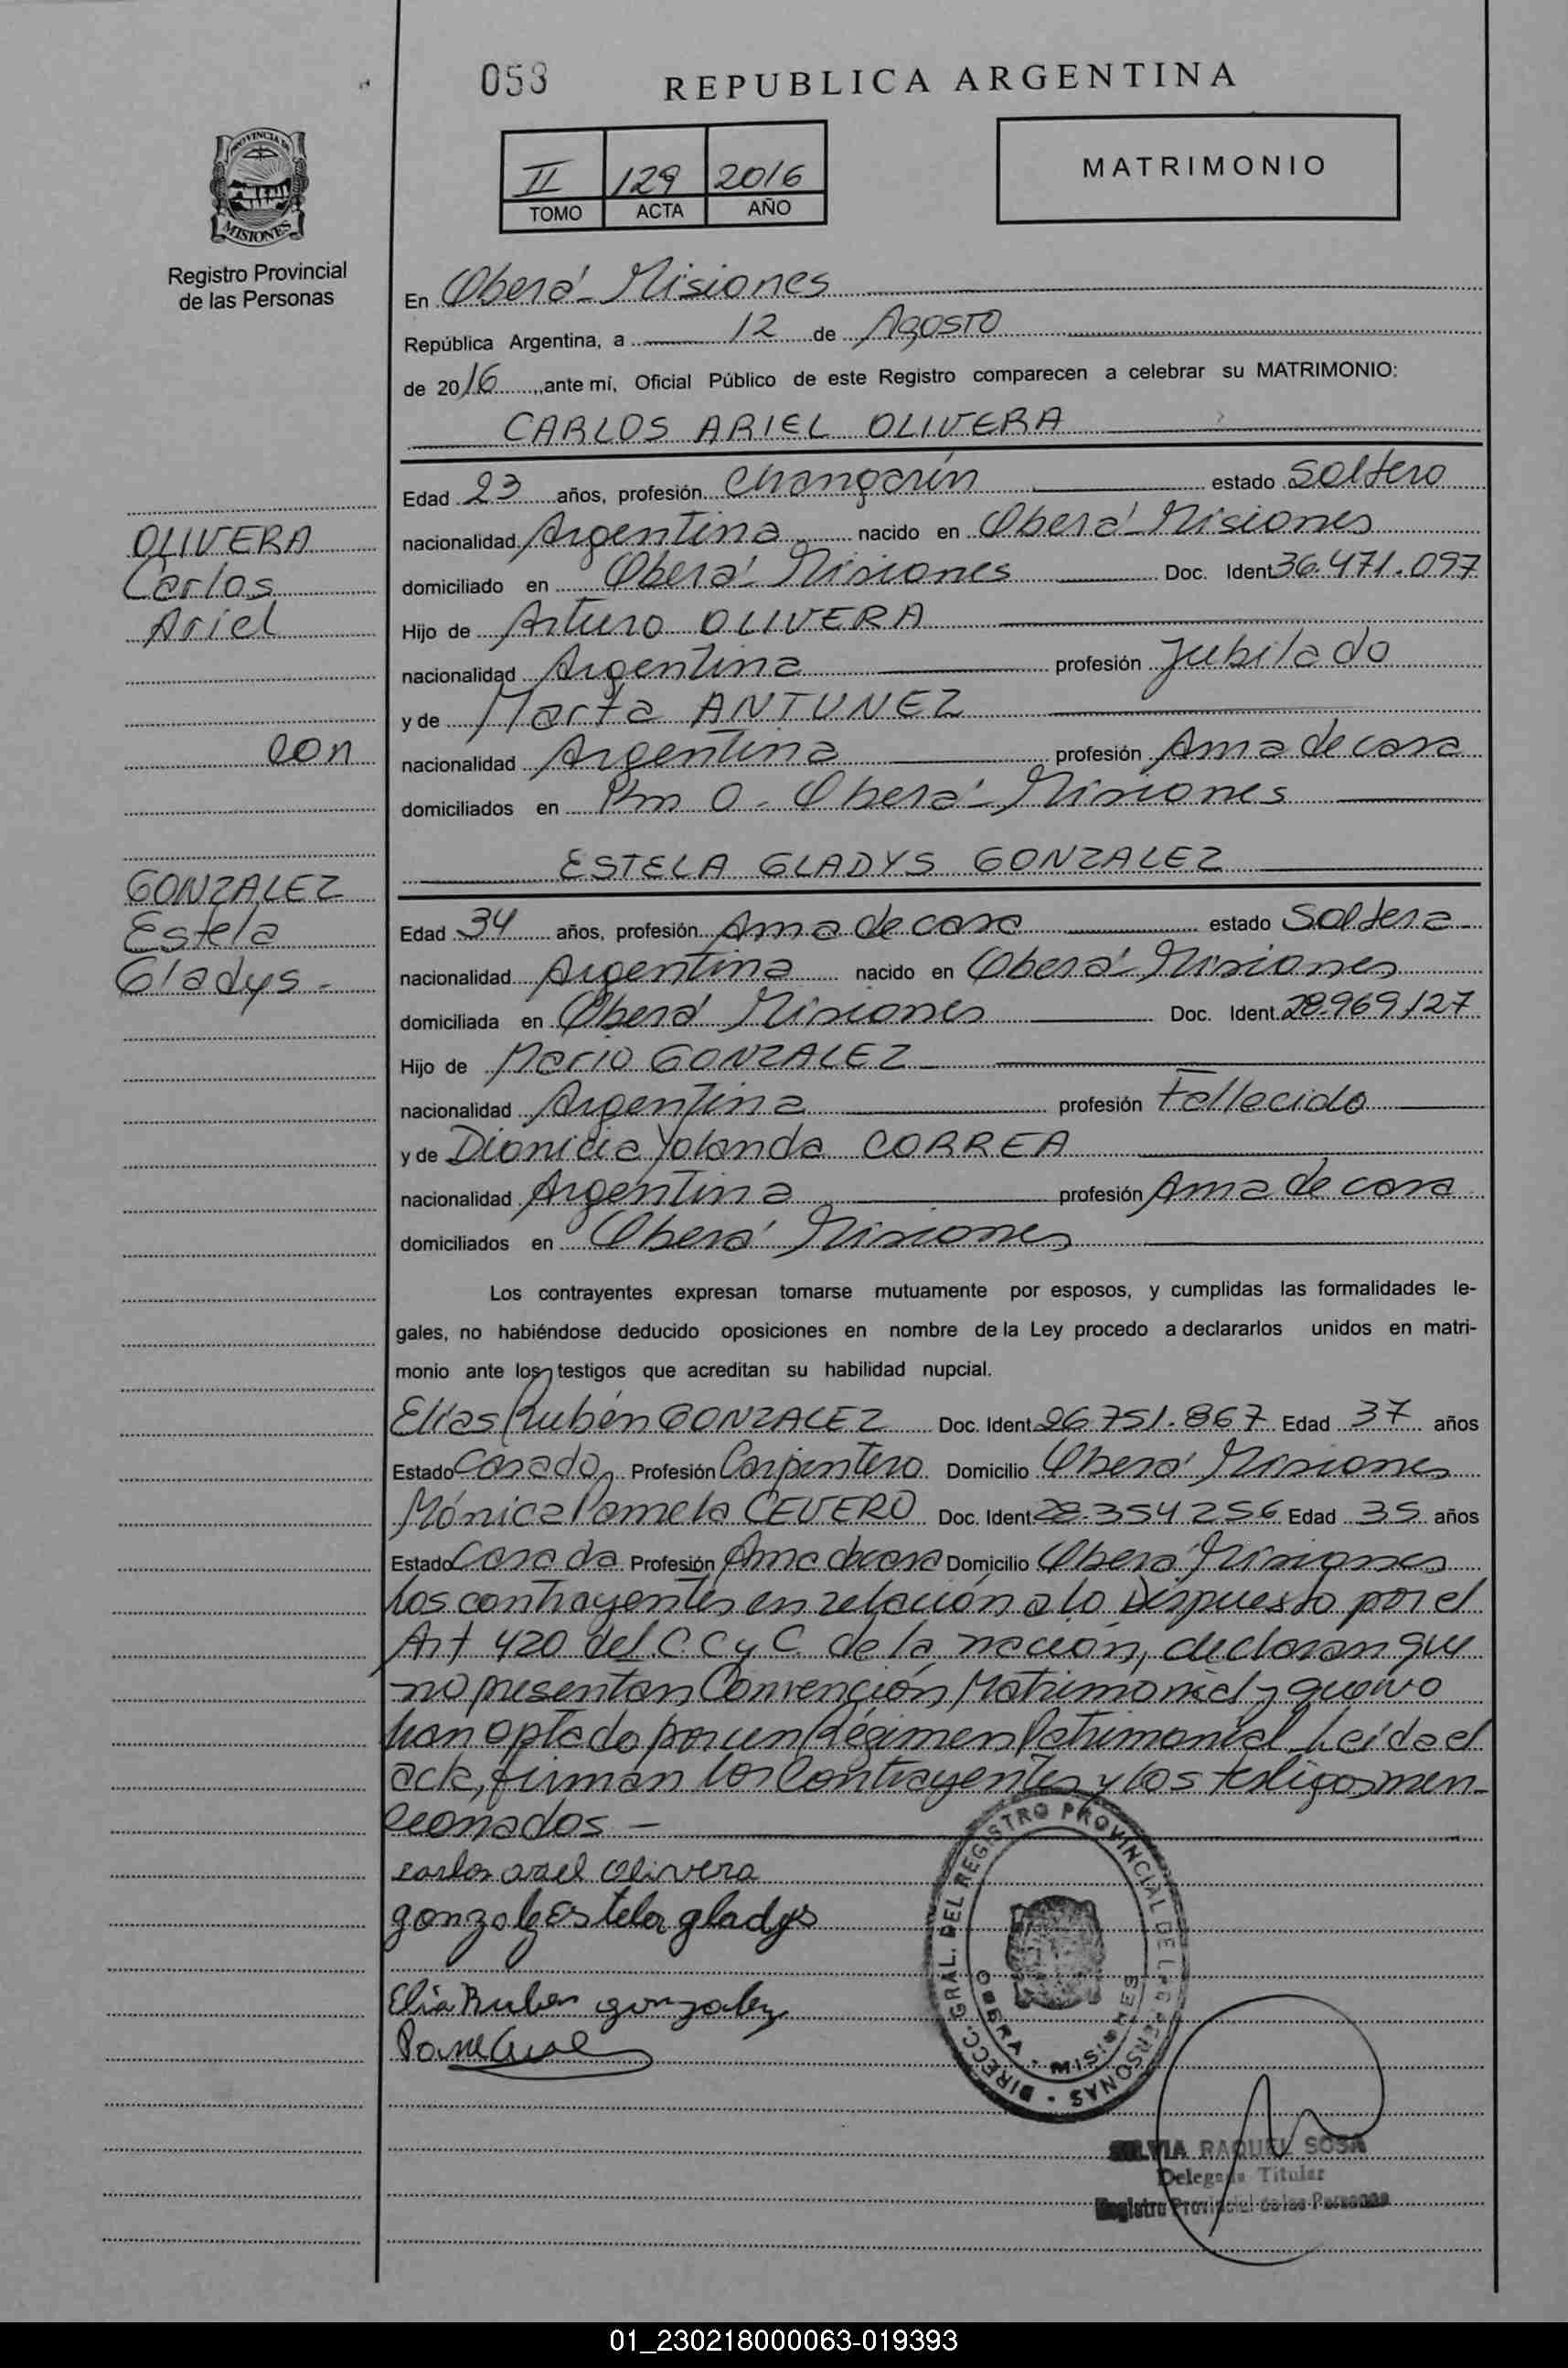 053
REPUBLICA ARGENTINA
II 129 2016
TOMO ACTA AÑO
MATRIMONIO
PROVINCIA DE
MISIONES
Registro Provincial
de las Personas
En Oberá - Misiones
República Argentina, a 12 de Agosto
de 2016, ante mí, Oficial Público de este Registro comparecen a celebrar su MATRIMONIO:
CARLOS ARIEL OLIVERA
Edad 23 años, profesión Changarín estado Soltero
OLIVERA
nacionalidad Argentina nacido en Oberá - Misiones
Carlos
domiciliado en Oberá - Misiones Doc. Ident. 36.471.097
Ariel
Hijo de Arturo OLIVERA
nacionalidad Argentina profesión Jubilado
y de Marta ANTUNEZ
con
nacionalidad Argentina profesión Ama de casa
domiciliados en Km 0 - Oberá - Misiones
ESTELA GLADYS GONZALEZ
GONZALEZ
Estela
Edad 34 años, profesión Ama de casa estado Soltera -
Gladys -
nacionalidad Argentina nacido en Oberá - Misiones
domiciliada en Oberá Misiones Doc. Ident. 28.969.127
Hijo de Mario GONZALEZ
nacionalidad Argentina profesión Fallecido
y de Dionicia Yolanda CORREA
nacionalidad Argentina profesión Ama de casa
domiciliados en Oberá Misiones
Los contrayentes expresan tomarse mutuamente por esposos, y cumplidas las formalidades le-
gales, no habiéndose deducido oposiciones en nombre de la Ley procedo a declararlos unidos en matri-
monio ante los testigos que acreditan su habilidad nupcial.
Elías Rubén GONZALEZ Doc. Ident. 26.751.867 Edad 37 años
Estado Casado Profesión Carpintero Domicilio Oberá Misiones
Mónica Pamela CEVERO Doc. Ident. 28.354.256 Edad 35 años
Estado Casada Profesión Ama de casa Domicilio Oberá Misiones
Los contrayentes en relación a lo Dispuesto por el
Art 420 del C.C y C. de la nación, declaran que
no presentan Convención Matrimonial y que no
han optado por un Régimen Patrimonial. Leída el
acta, firman los Contrayentes y los testigos men-
cionados -
carlos ariel olivera
gonzalez estela gladys
Elia Ruben gonzalez
DIRECC. GRAL. DEL REGISTRO PROVINCIAL DE LAS PERSONAS
OBERA - MISIONES
SILVIA RAQUEL SOSA
Delegada Titular
Registro Provincial de las Personas
01_230218000063-019393